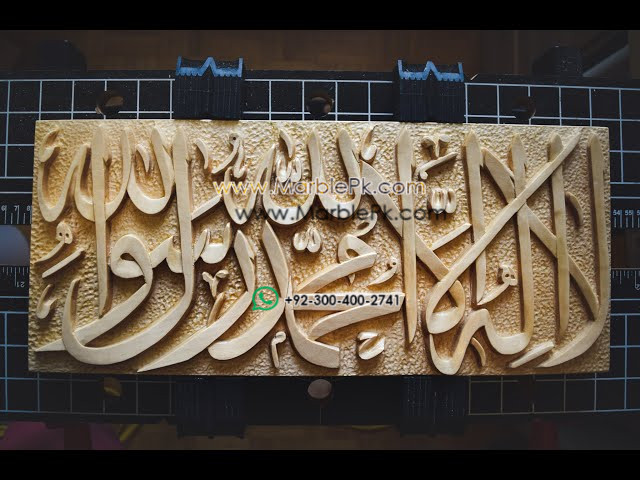 لا إله إلا الله محمد رسول الله
www.MarblePk.com
www.MarblePk.com
+92-300-400-2741